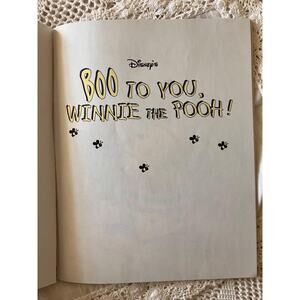 Disney's
BOO TO YOU,
WINNIE THE POOH!